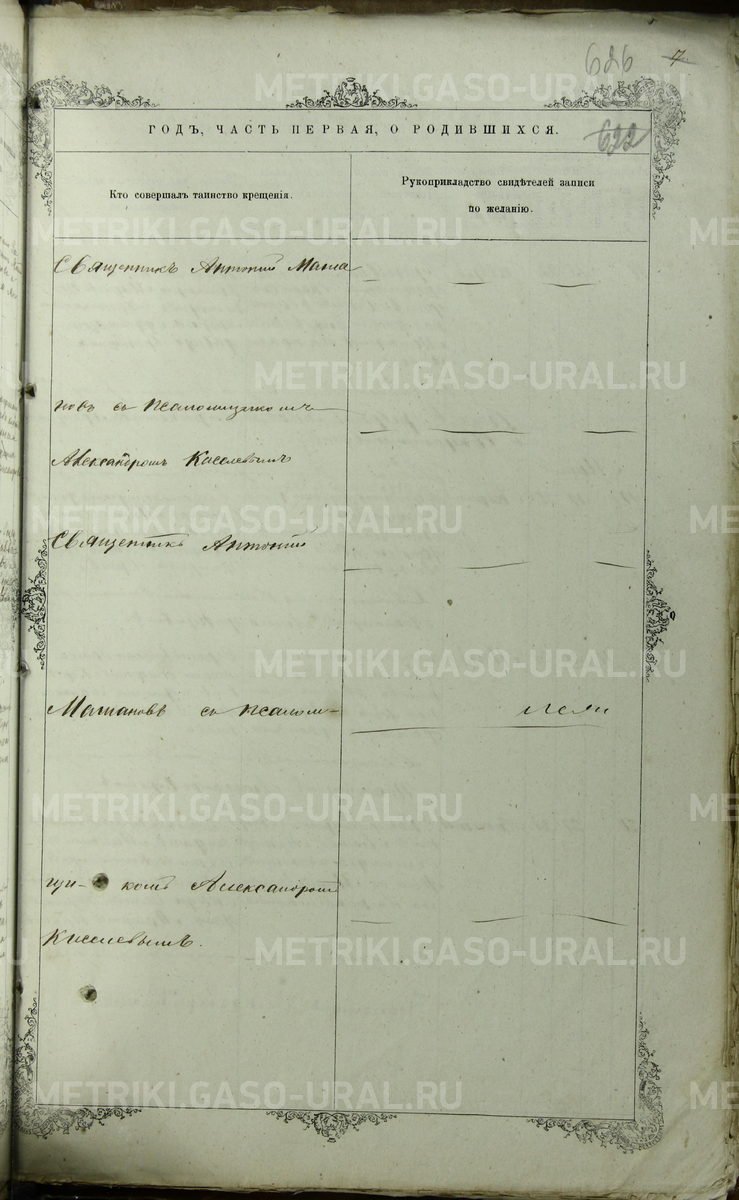 626 7
ГОДЪ, ЧАСТЬ ПЕРВАЯ, О РОДИВШИХСЯ.
622
Кто совершалъ таинство крещенія.
Рукоприкладство свидѣтелей записи
по желанію.
Священникъ Антоній Маша
новъ съ псаломщикомъ
Александромъ Киселевымъ
Священникъ Антоній
Машановъ съ псалом-
щи- комъ Александромъ
Киселевымъ.
METRIKI.GASO-URAL.RU